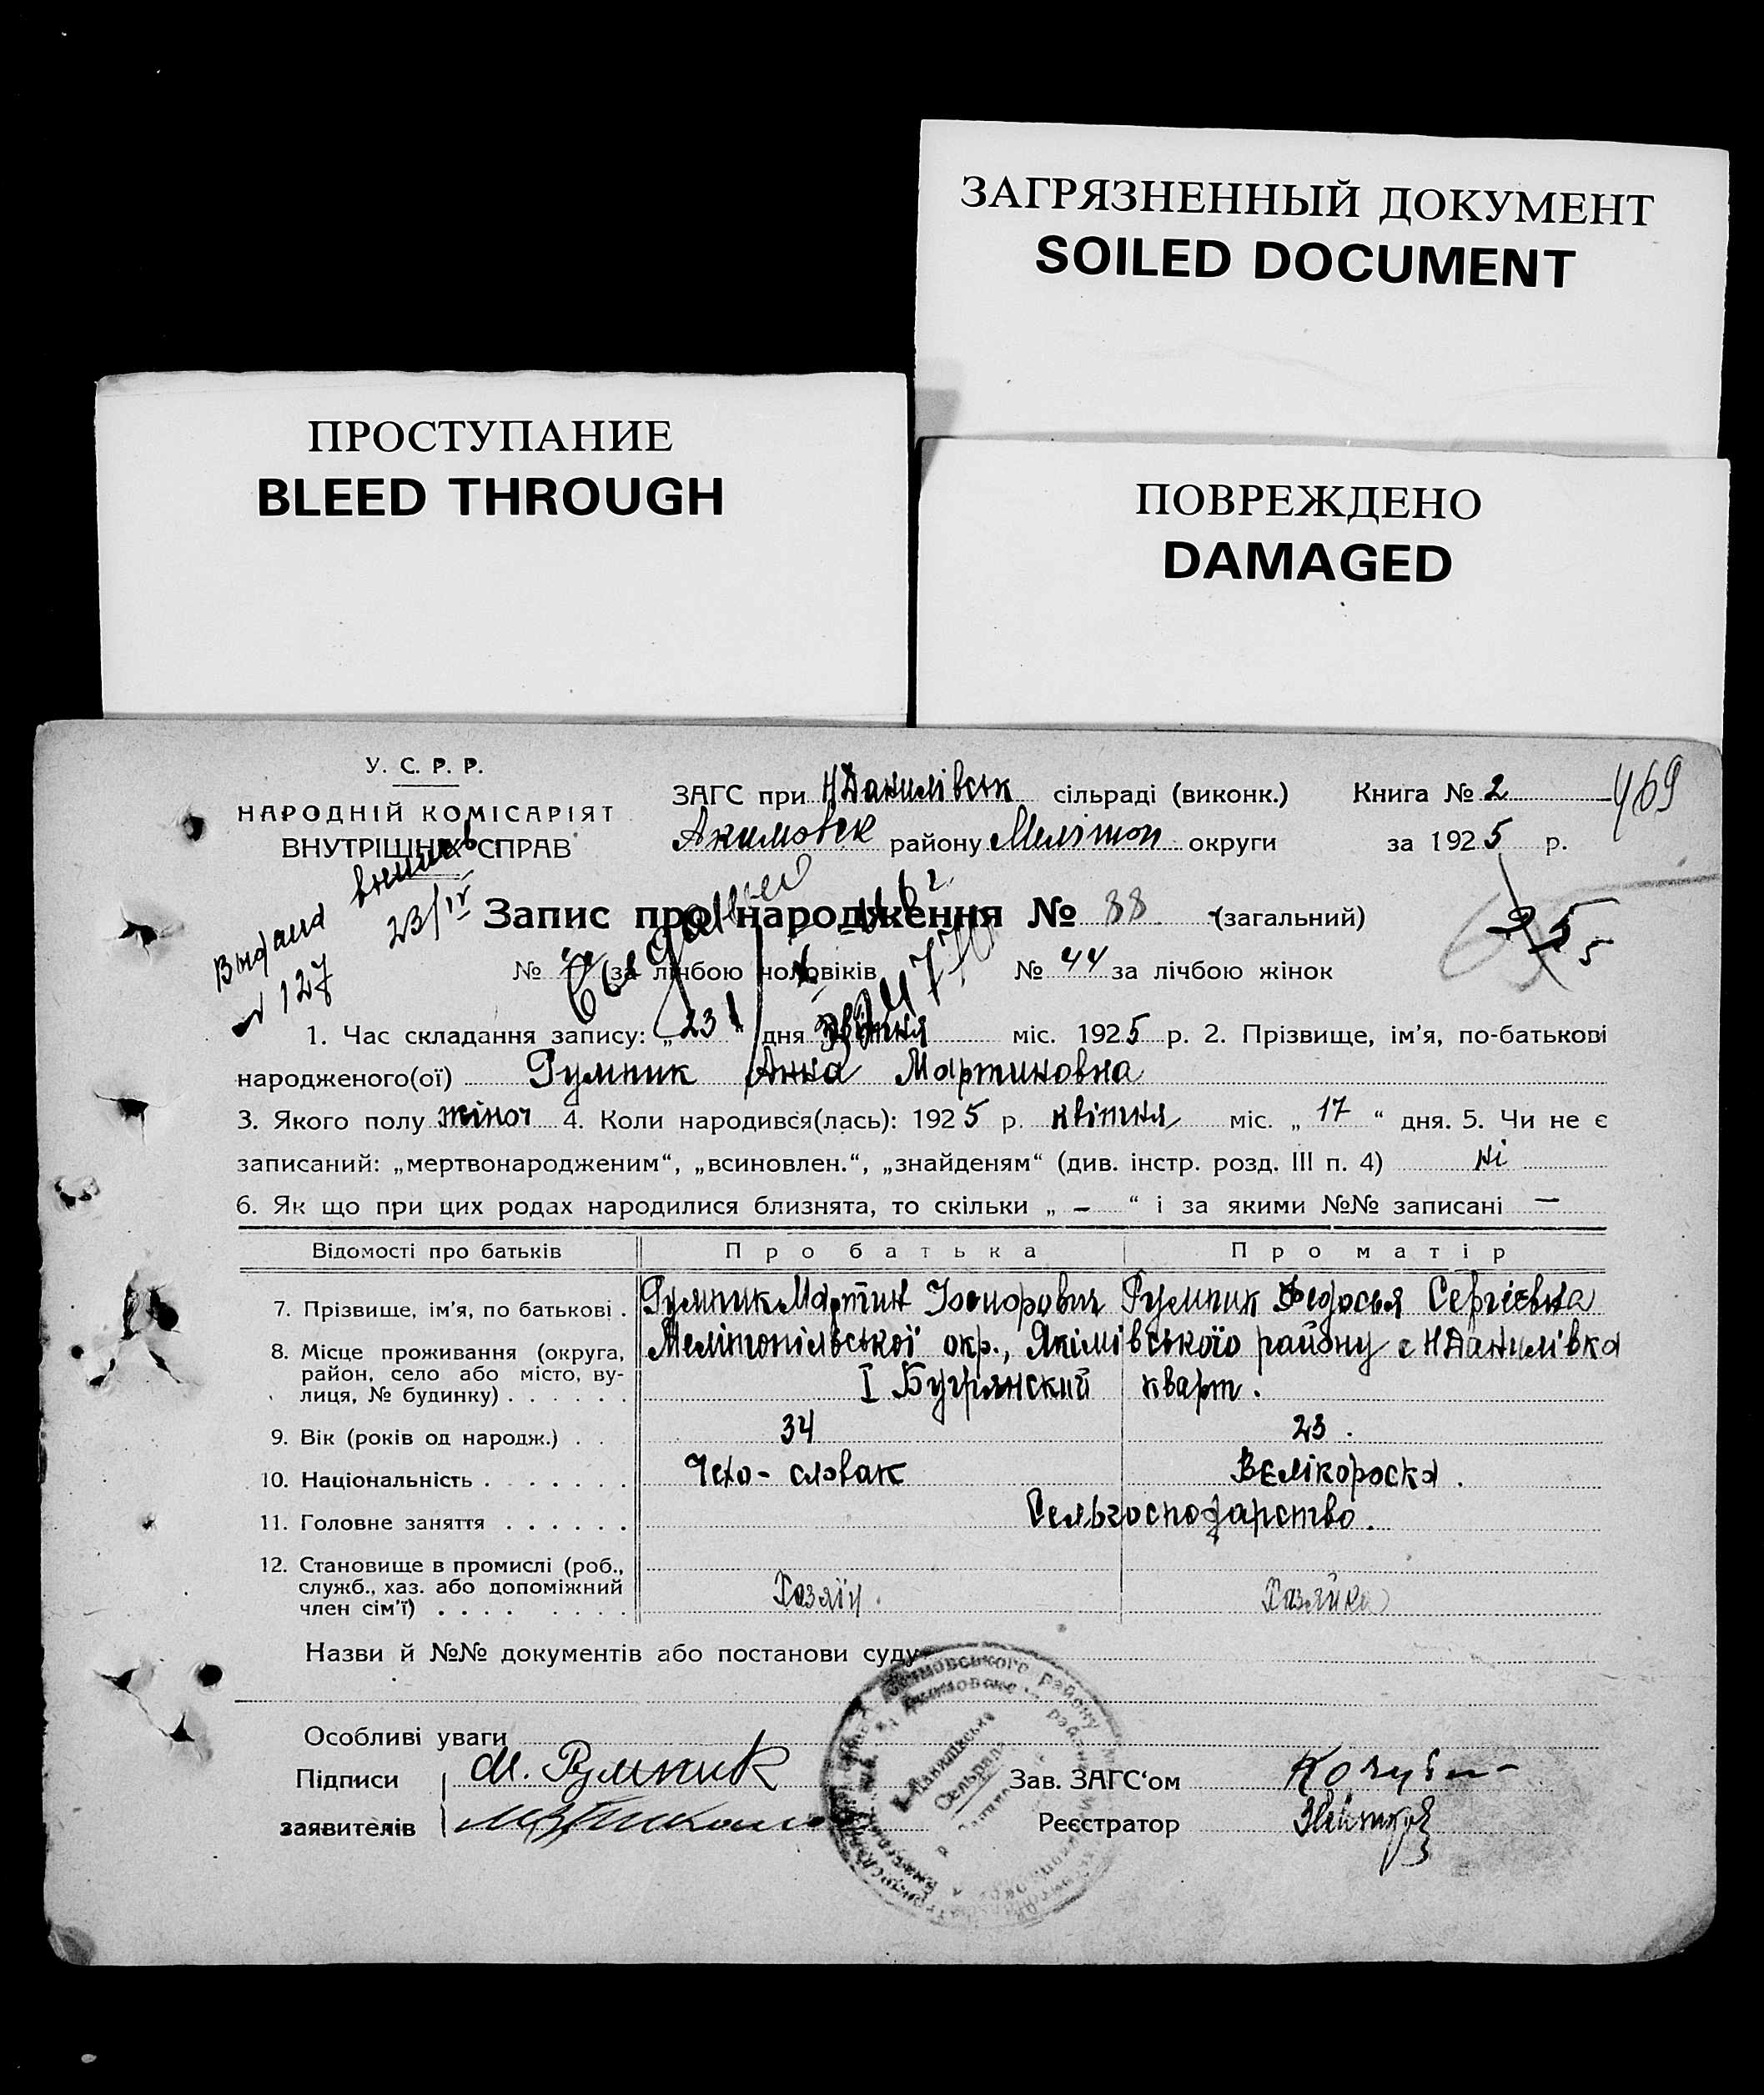 ЗАГРЯЗНЕННЫЙ ДОКУМЕНТ
SOILED DOCUMENT
ПРОСТУПАНИЕ
BLEED THROUGH
ПОВРЕЖДЕНО
DAMAGED
У. С. Р. Р.
НАРОДНІЙ КОМІСАРІЯТ
ВНУТРІШНІХ СПРАВ
ЗАГС при НДанилівськ сільраді (виконк.) Книга № 2 469
Акимовск району Мелітоп округи за 1925 р.
23/IV
127
Запис про народження № 88 (загальний)
№ за лічбою чоловіків № 44 за лічбою жінок
1. Час складання запису: „23“ дня квітня міс. 1925 р. 2. Прізвище, ім'я, по-батькові
народженого(ої) Румпик Анна Мартиновна
3. Якого полу жіноч 4. Коли народився(лась): 1925 р. квітня міс. „17“ дня. 5. Чи не є
записаний: „мертвонародженим“, „всиновлен.“, „знайденям“ (див. інстр. розд. III п. 4) ні
6. Як що при цих родах народилися близнята, то скільки „ – “ і за якими №№ записані —
Відомості про батьків Про батька Про матір
7. Прізвище, ім'я, по батькові . Румпик Мартин Румпик Федосья Сергіевна
8. Місце проживання (округа, район, село або місто, вулиця, № будинку) . . . . . . Мелітопільської окр., Якімівського району с НДанилівка
I кварт.
9. Вік (років од народж.) . . 34 23.
10. Національність . . . . . . . Чехо-словак Вєлікороска.
11. Головне заняття . . . . . . Сельгосподарство.
12. Становище в промислі (роб., служб., хаз. або допоміжний член сім'ї) . . . . . . . . Хазяїн. Хазяйка
Назви й №№ документів або постанови суду
Особливі уваги
Підписи М. Румпик Зав. ЗАГС'ом
заявителів Реєстратор